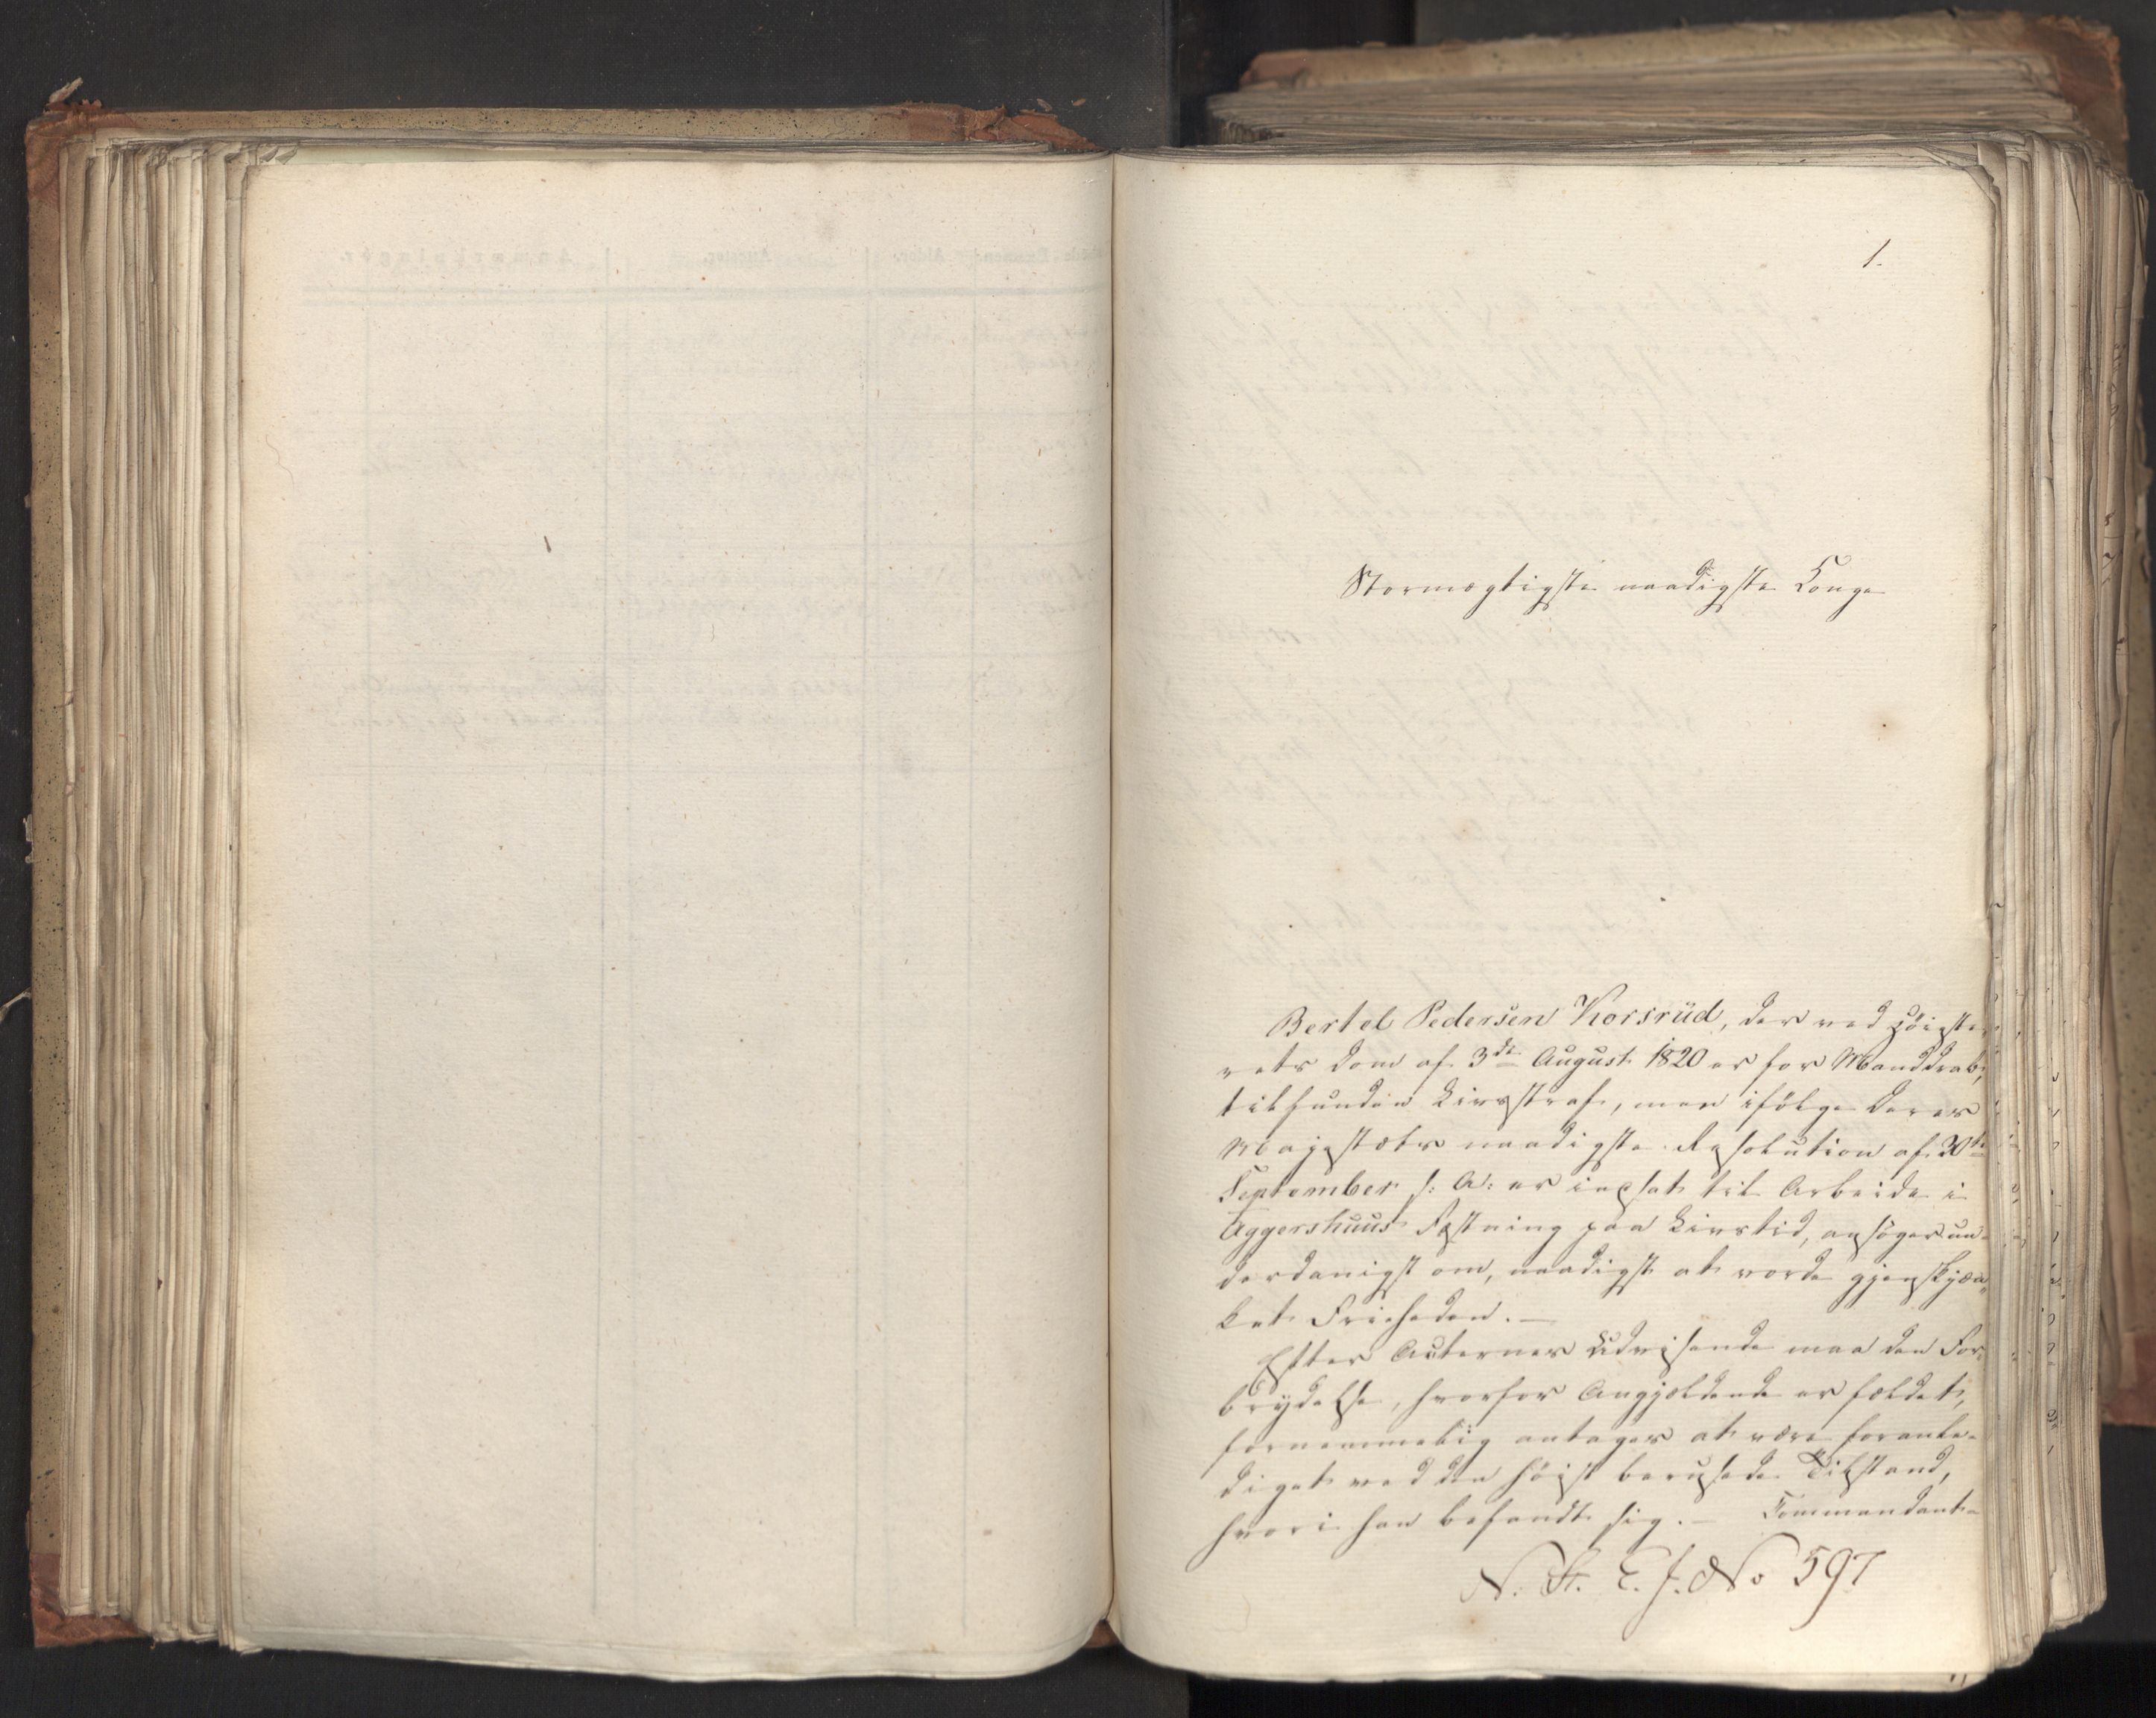 1.
Stormægtigste naadigste Konge
Bertel Pedersen Korsrüd, der ved Höieste
rets Dom af 3die August 1820 er for Manddrab,
tilfunden Livsstraf, men ifölge Deres
Majestæts naadigste Resolution af 30te
September s: A: er indsat til Arbeide i
Aggershuus Fæstning paa Livstid, ansöger un-
derdanigst om, naadigst at vorde gjenskjæn-
ket Friheden. —
Efter Acternes Udvisende maa den For-
brydelse, hvorfor Angjældende er fældet,
fornemmelig antages at være foranle-
diget ved den höist berusede Tilstand,
hvori han befandt sig. — Commandant-
N. St. E. J. No 597